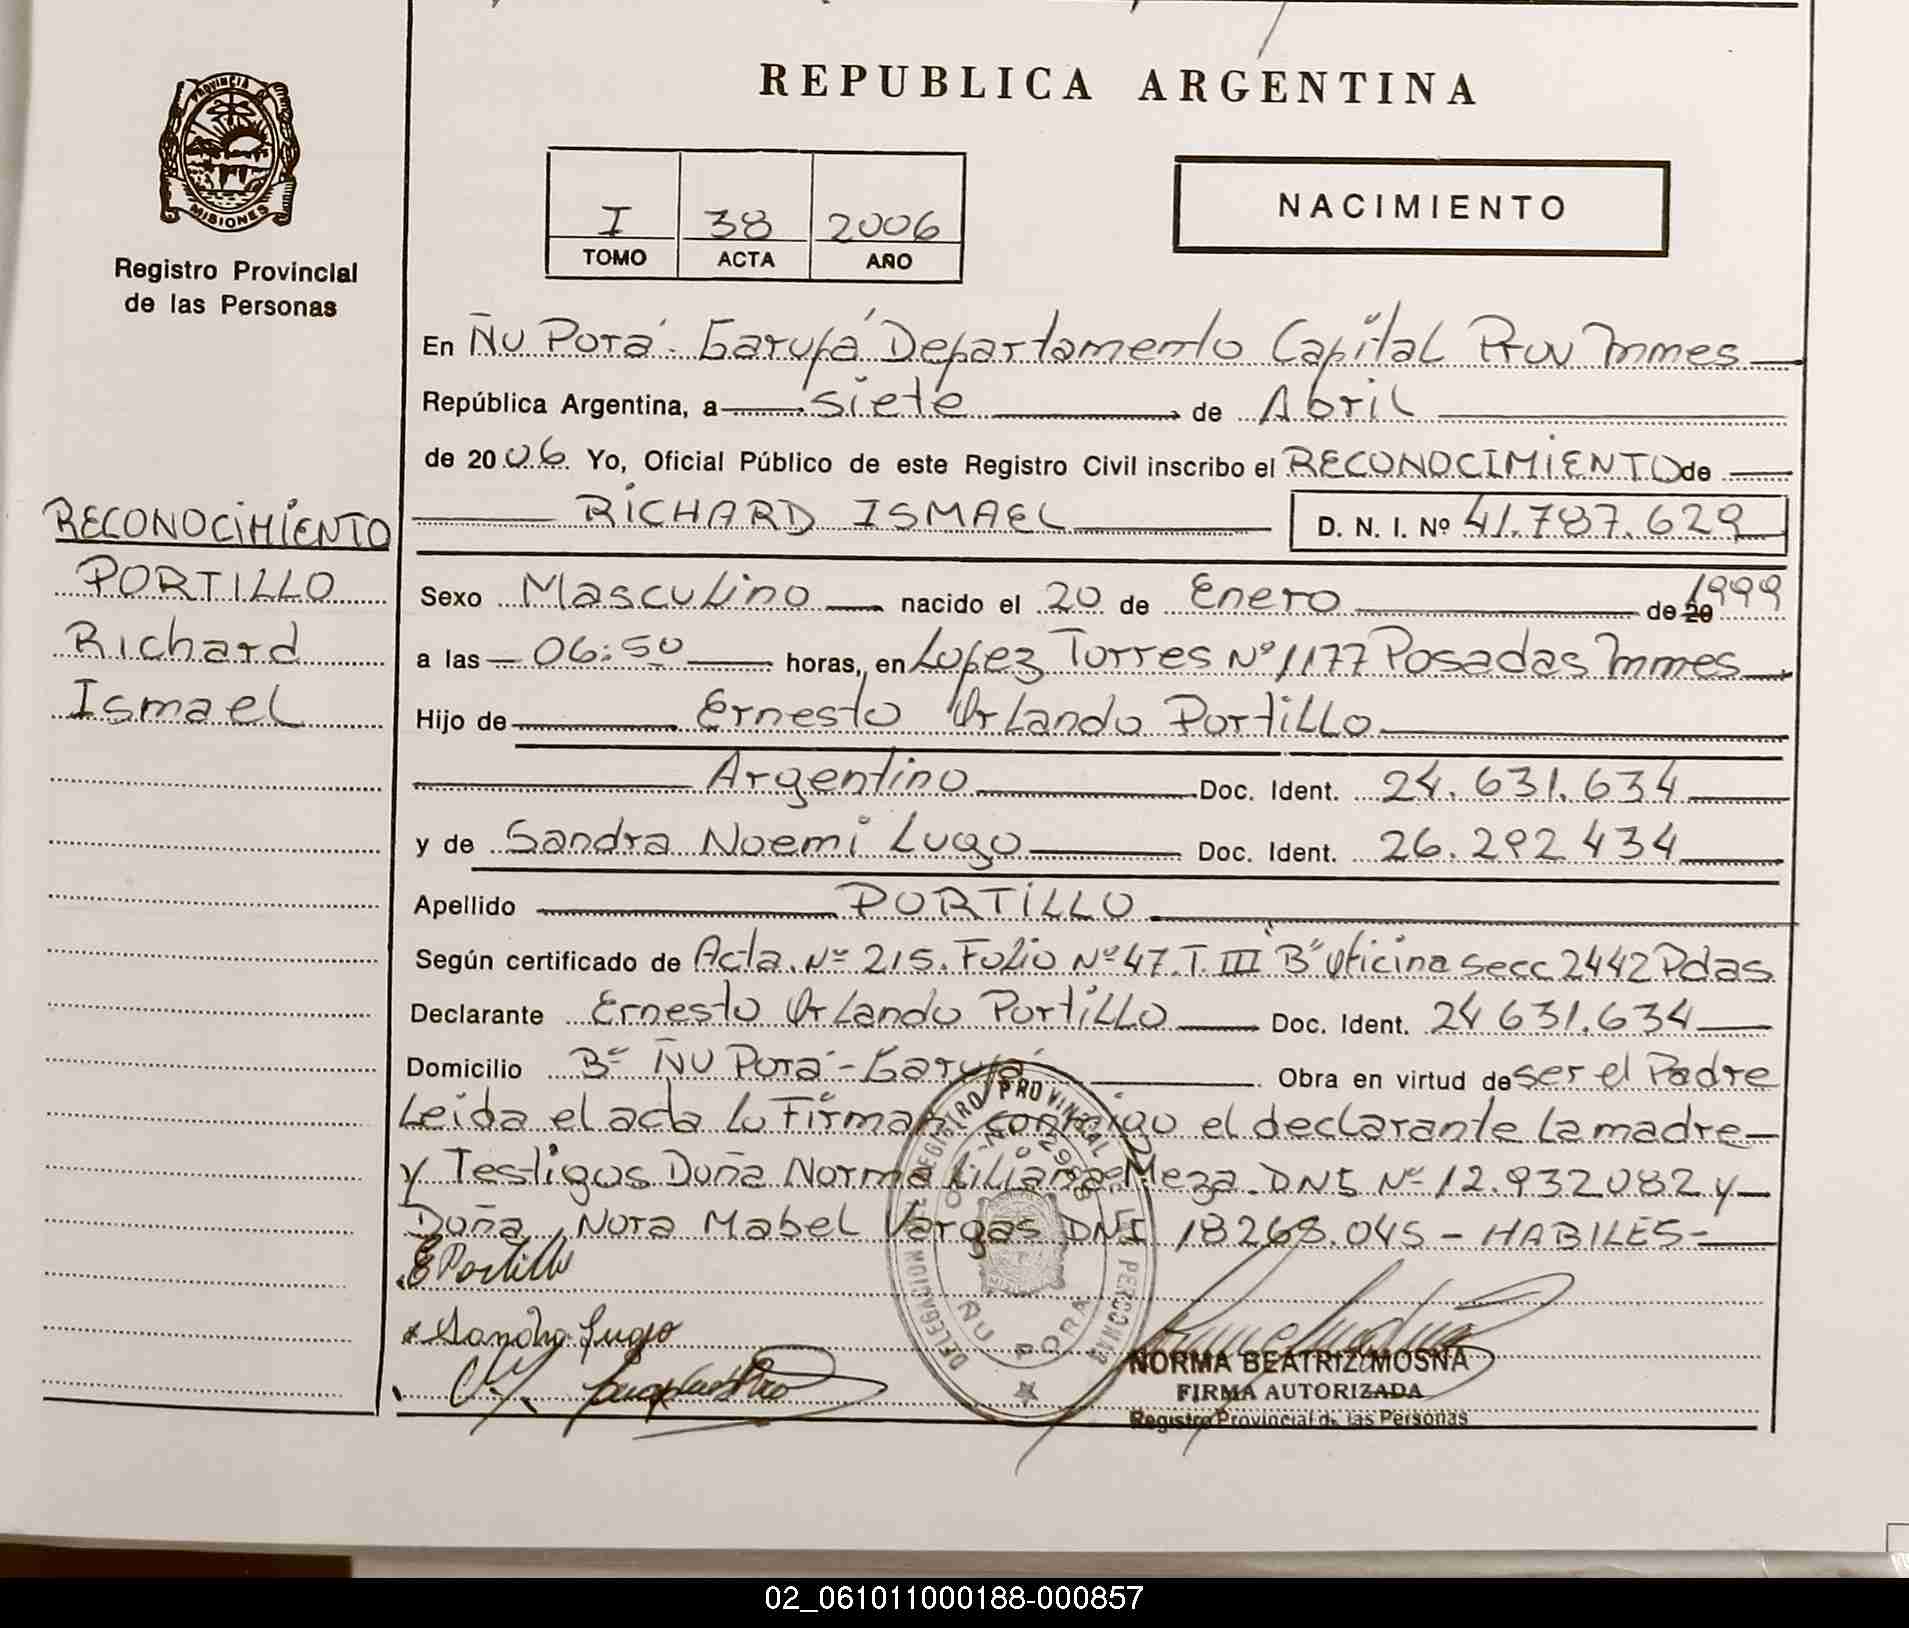 REPUBLICA ARGENTINA
PROVINCIA DE
MISIONES
Registro Provincial
de las Personas
I 38 2006
TOMO ACTA AÑO
NACIMIENTO
En Ñu Porá - Garupá Departamento Capital Prov Mnes
República Argentina, a siete de Abril
de 2006. Yo, Oficial Público de este Registro Civil inscribo el RECONOCIMIENTO de
RICHARD ISMAEL D. N. I. Nº 41.787.629
RECONOCIMIENTO
PORTILLO
Richard
Ismael
Sexo Masculino nacido el 20 de Enero de 20 1999
a las 06:50 horas, en Lopez Torres Nº 1177 Posadas Mnes
Hijo de Ernesto Orlando Portillo
Argentino Doc. Ident. 24.631.634
y de Sandra Noemi Lugo Doc. Ident. 26.292 434
Apellido PORTILLO
Según certificado de Acta Nº 215. Folio Nº 47. T. III "B" Oficina Secc 2442 Pdas.
Declarante Ernesto Orlando Portillo Doc. Ident. 24 631.634
Domicilio Bº Ñu Porá - Garupá Obra en virtud de ser el Padre
Leida el acta lo Firman conmigo el declarante la madre
y Testigos Doña Norma Liliana Meza. DNI Nº 12.932082 y
Doña Nora Mabel Vargas DNI 18268.045 - HABILES -
E Portillo
Sandra Lugo
DELEGACION REGISTRO PROVINCIAL DE LAS PERSONAS
ÑU PORA
NORMA BEATRIZ MOSNA
FIRMA AUTORIZADA
Registro Provincial de las Personas
02_061011000188-000857